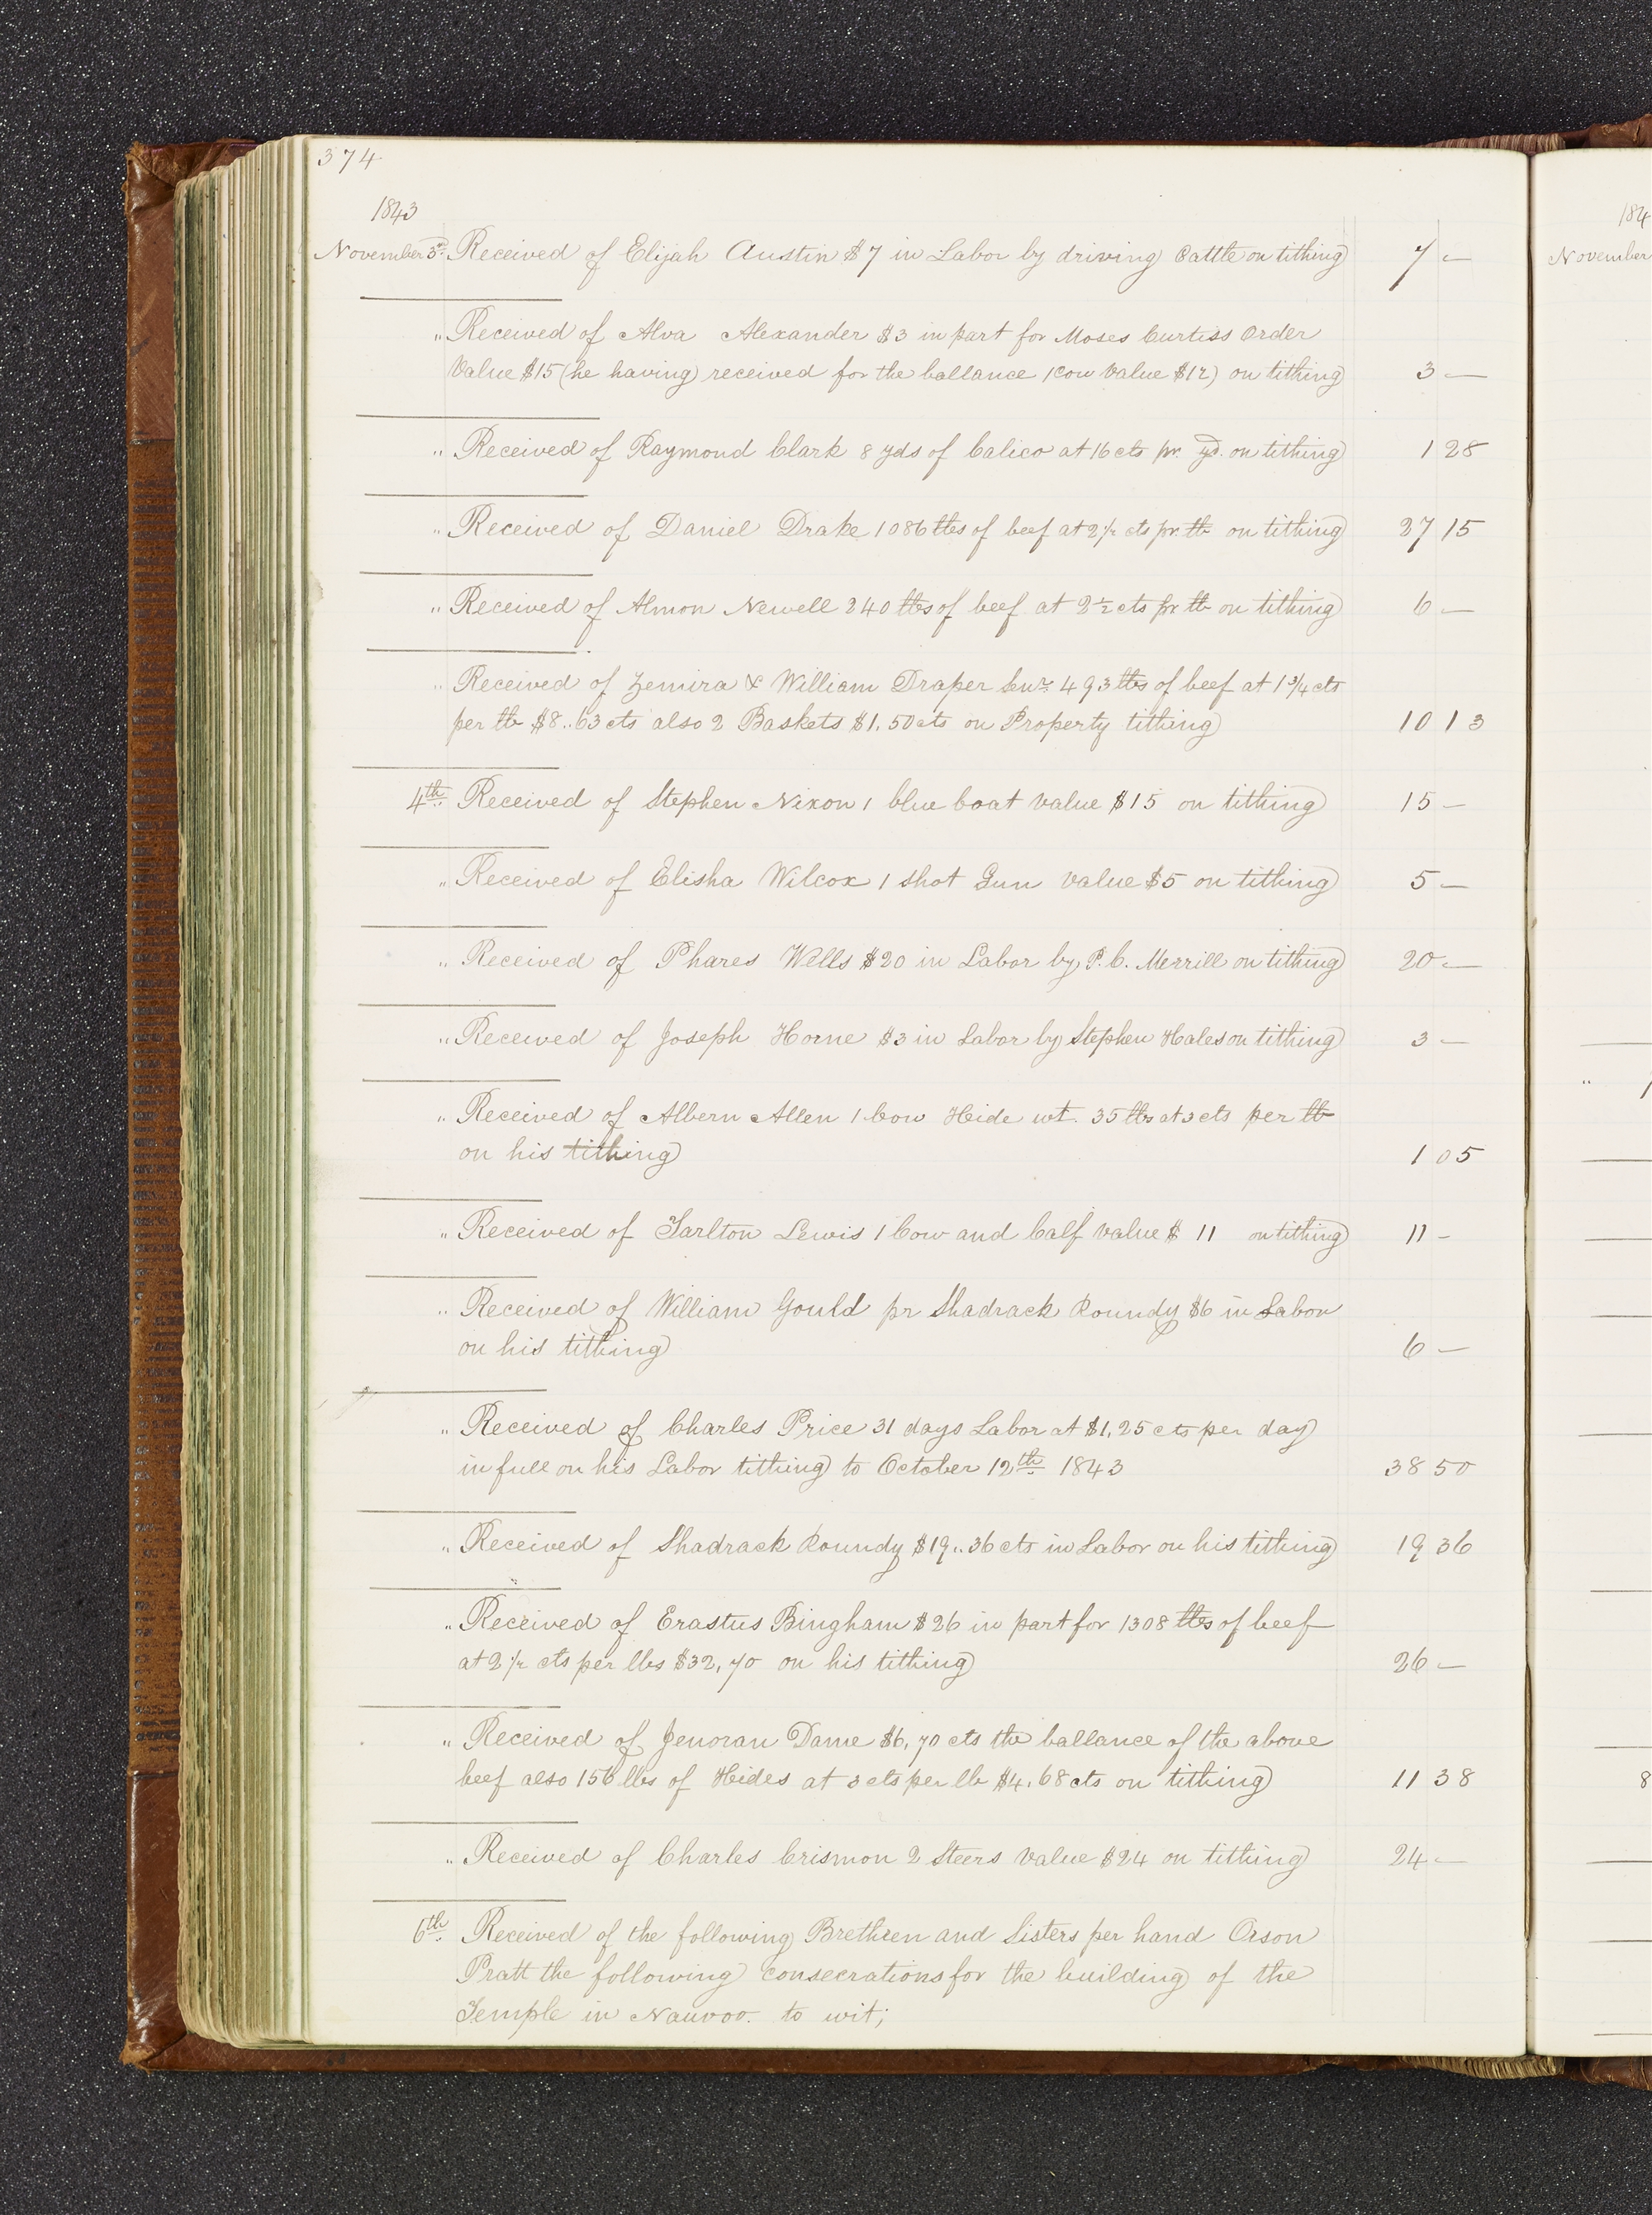 374
1843
November 3d. Received of Elijah Austin $7 in Labor by driving Cattle on tithing 7 —
" Received of Alva Alexander $3 in part for Moses Curtiss Order
Value $15 (he having received for the ballance 1 Cow Value $12) on tithing 3 —
" Received of Raymond Clark 8 yds of Calico at 16 cts pr. yd. on tithing 1 28
" Received of Daniel Drake 1086 lbs of beef at 2 1/2 cts pr. lb on tithing 27 15
" Received of Almon Newell 240 lbs of beef at 2 1/2 cts pr lb on tithing 6 —
" Received of Zemira & William Draper Senr. 493 lbs of beef at 1 3/4 cts
per lb $8..63 cts also 2 Baskets $1.50 cts on Property tithing 10 13
4th. Received of Stephen Nixon 1 blue Coat Value $15 on tithing 15 —
" Received of Elisha Wilcox 1 Shot Gun Value $5 on tithing 5 —
" Received of Phares Wells $20 in Labor by P. C. Merrill on tithing 20 —
" Received of Joseph Horne $3 in Labor by Stephen Hales on tithing 3 —
" Received of Albern Allen 1 Cow Hide wt. 35 lbs at 3 cts per lb
on his tithing 1 05
" Received of Tarlton Lewis 1 Cow and Calf Value $ 11 on tithing 11 —
" Received of William Gould pr Shadrack Roundy $6 in Labor
on his tithing 6 —
" Received of Charles Price 31 days Labor at $1,25 cts per day
in full on his Labor tithing to October 12th. 1843 38 50
" Received of Shadrack Roundy $19..36 cts in Labor on his tithing 19 36
" Received of Erastus Bingham $26 in part for 1308 lbs of beef
at 2 1/2 cts per lbs $32,70 on his tithing 26 —
" Received of Jenoran Dame $6,70 cts the ballance of the above
beef also 156 lbs of Hides at 3 cts per lb $4.68 cts on tithing 11 38
" Received of Charles Crismon 2 Steers Value $24 on tithing 24 —
6th. Received of the following Brethren and Sisters per hand Orson
Pratt the following consecrations for the building of the
Temple in Nauvoo. to wit;
184
November
"
8